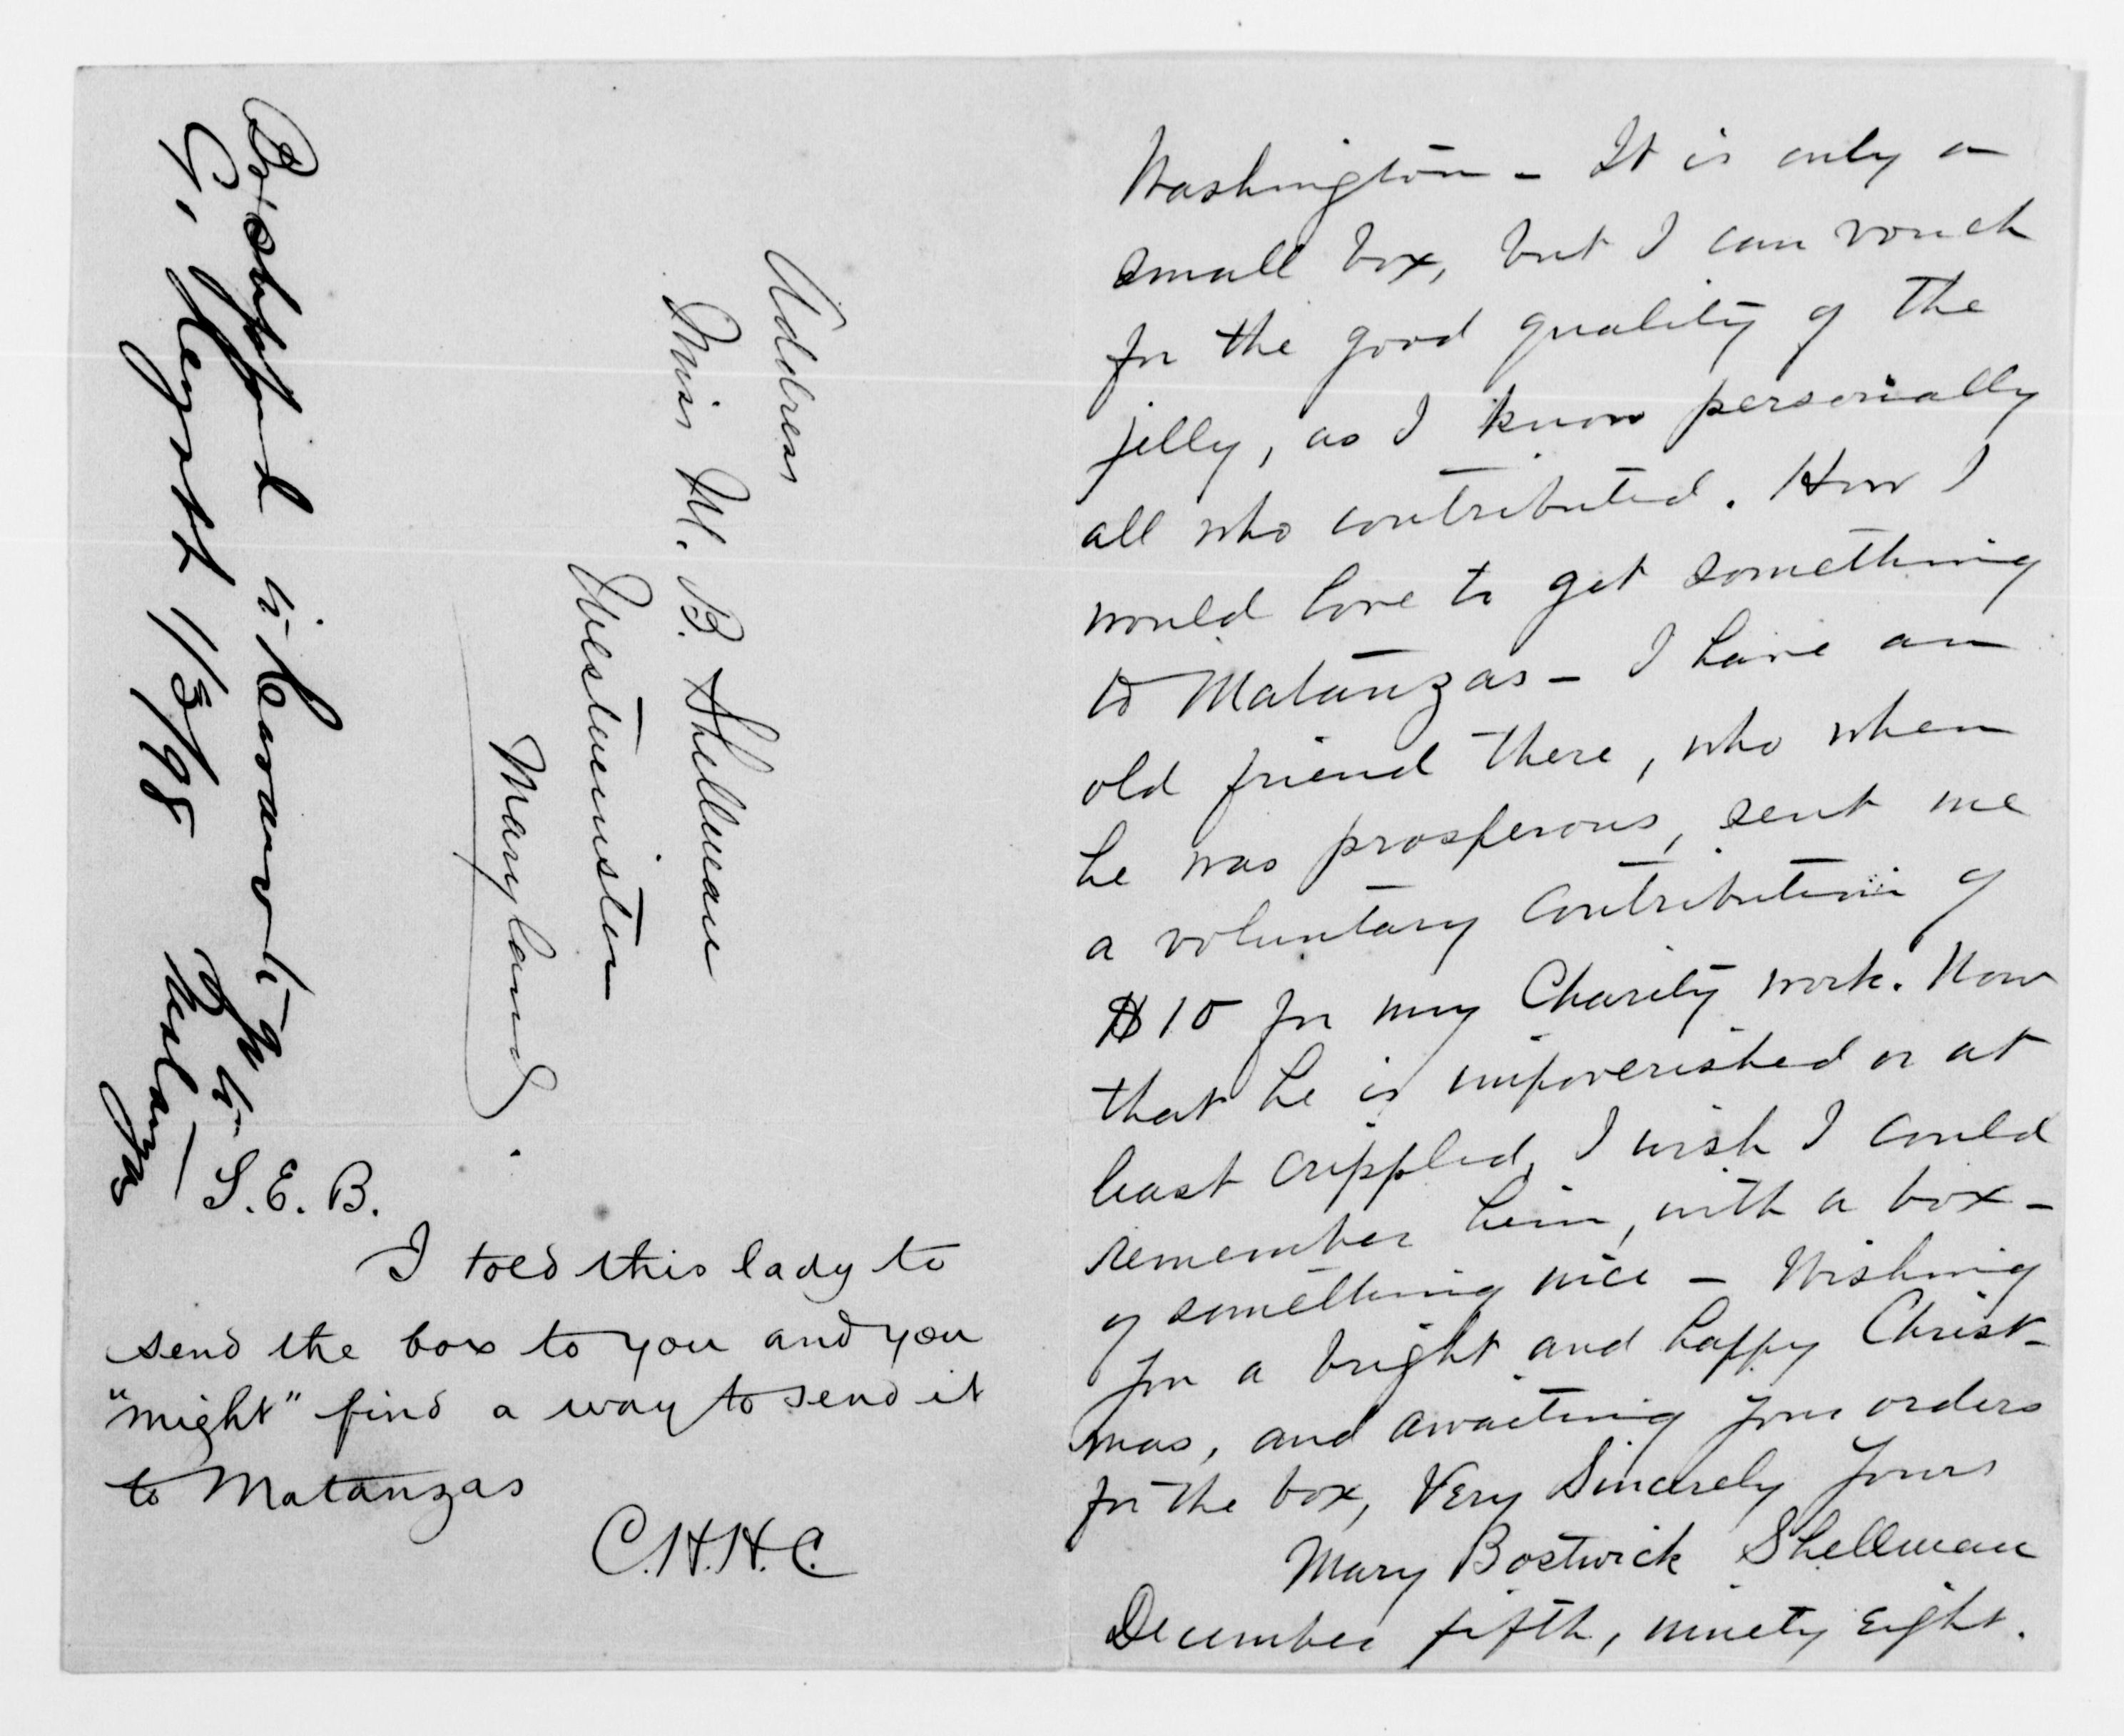 Address
Miss M. B. Shellman
Westminster
Maryland.
S. E. B.
I told this lady to
send the box to you and you
"might" find a way to send it
to Matanzas
C.H.H.C.
Washington - It is only a
small box, but I can vouch
for the good quality of the
jelly, as I know personally
all who contributed. How I
would love to get something
to Matanzas - I have an
old friend there, who when
he was prosperous, sent me
a voluntary contribution of
$10 for my Charity work. Now
that he is impoverished or at
least crippled, I wish I could
remember him, with a box -
of something nice - Wishing
you a bright and happy Christ-
mas, and awaiting your orders
for the box, Very Sincerely Yours
Mary Bostwick Shellman
December fifth, ninety Eight.